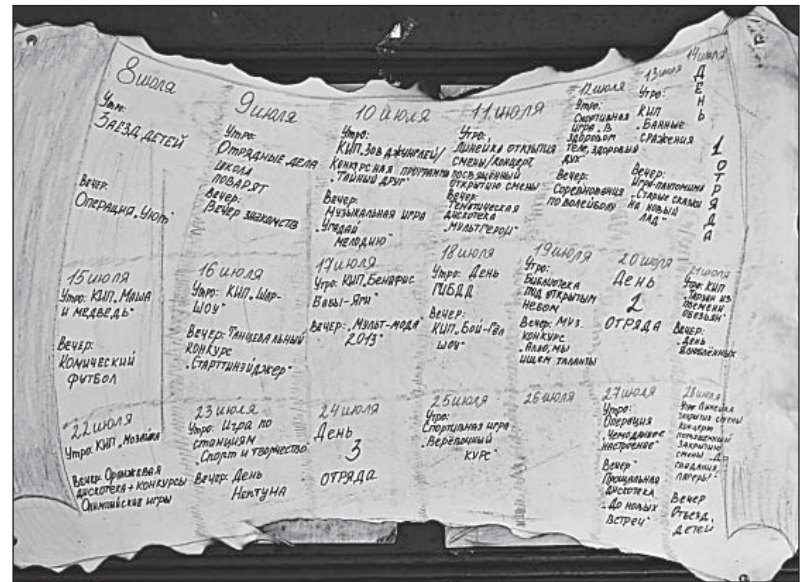 8 июля
Утро:
Заезд детей
Вечер:
Операция „Уют"
9 июля
Утро:
Отрядные дела
школа
поварят
Вечер:
Вечер знакомств
10 июля
Утро:
КИП„Зов джунглей/
Конкурсная программа
„Тайный друг"
Вечер:
Музыкальная игра
„Угадай
мелодию"
11 июля
Утро:
Линейка открытия
смены/концерт
посвящённый
открытию смены
Вечер:
Тематическая
дискотека
„Мультгерои"
12 июля
Утро:
Спортивная
игра „В
здоровом
теле, здоровый
дух"
Вечер:
Соревнования
по волейболу
13 июля
Утро:
КИП
„Банные
сражения
Вечер:
Игры-пантомимы
„Старые сказки
на новый
лад"
14 июля
День 1 отряда
15 июля
Утро: КИП„Маша
и медведь"
Вечер:
Комический
футбол
16 июля
Утро: КИП„Шар-
шоу"
Вечер: Танцевальный
конкурс
„Старттинэйджер"
17 июля
Утро: КИП„Бенефис
Бабы-Яги"
Вечер: „Мульт-мода
2013"
18 июля
Утро: День
ГИБДД
Вечер:
КИП„Бой-Гёл
шоу"
19 июля
Утро:
Библиотека
под открытым
небом
Вечер: муз.
конкурс
„Алло, мы
ищем таланты
20 июля
День
2
отряда
21 июля
Утро: КИП
„Тарзан из
племени
обезьян"
Вечер:
„День
влюблённых
22 июля
Утро: КИП „Мозайка
Вечер: Оранжевая
дискотека + конкурсы
Олимпийские игры
23 июля
Утро: Игра по
станциям
„Спорт и творчество"
Вечер: День
Нептуна
24 июля
День
3
отряда
25 июля
Утро:
Спортивная игра
„Верёвочный
курс"
26 июля
27 июля
Утро:
Операция
„Чемоданное
настроение"
Вечер"
Прощальная
дискотека
„До новых
встреч"
28 июля
Утро: Линейка
закрытия смены
концерт
посвящённый
закрытию
смены „До
свидания,
лагерь!"
Вечер
Отъезд
детей